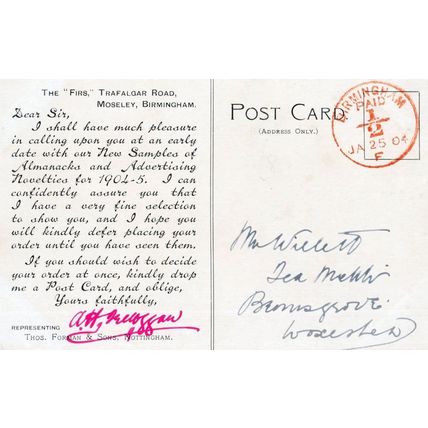 THE "FIRS," TRAFALGAR ROAD,
MOSELEY, BIRMINGHAM.
Dear Sir,
I shall have much pleasure
in calling upon you at an early
date with our New Samples of
Almanacks and Advertising
Novelties for 1904-5. I can
confidently assure you that
I have a very fine selection
to show you, and I hope you
will kindly defer placing your
order until you have seen them.
If you should wish to decide
your order at once, kindly drop
me a Post Card, and oblige,
Yours faithfully,
REPRESENTING
THOS. FORMAN & SONS, NOTTINGHAM.
POST CARD.
(ADDRESS ONLY.)
BIRMINGHAM
PAID
1/2
JA 25 04
F
Mr Willett
Tea
Bromsgrove
Worcester